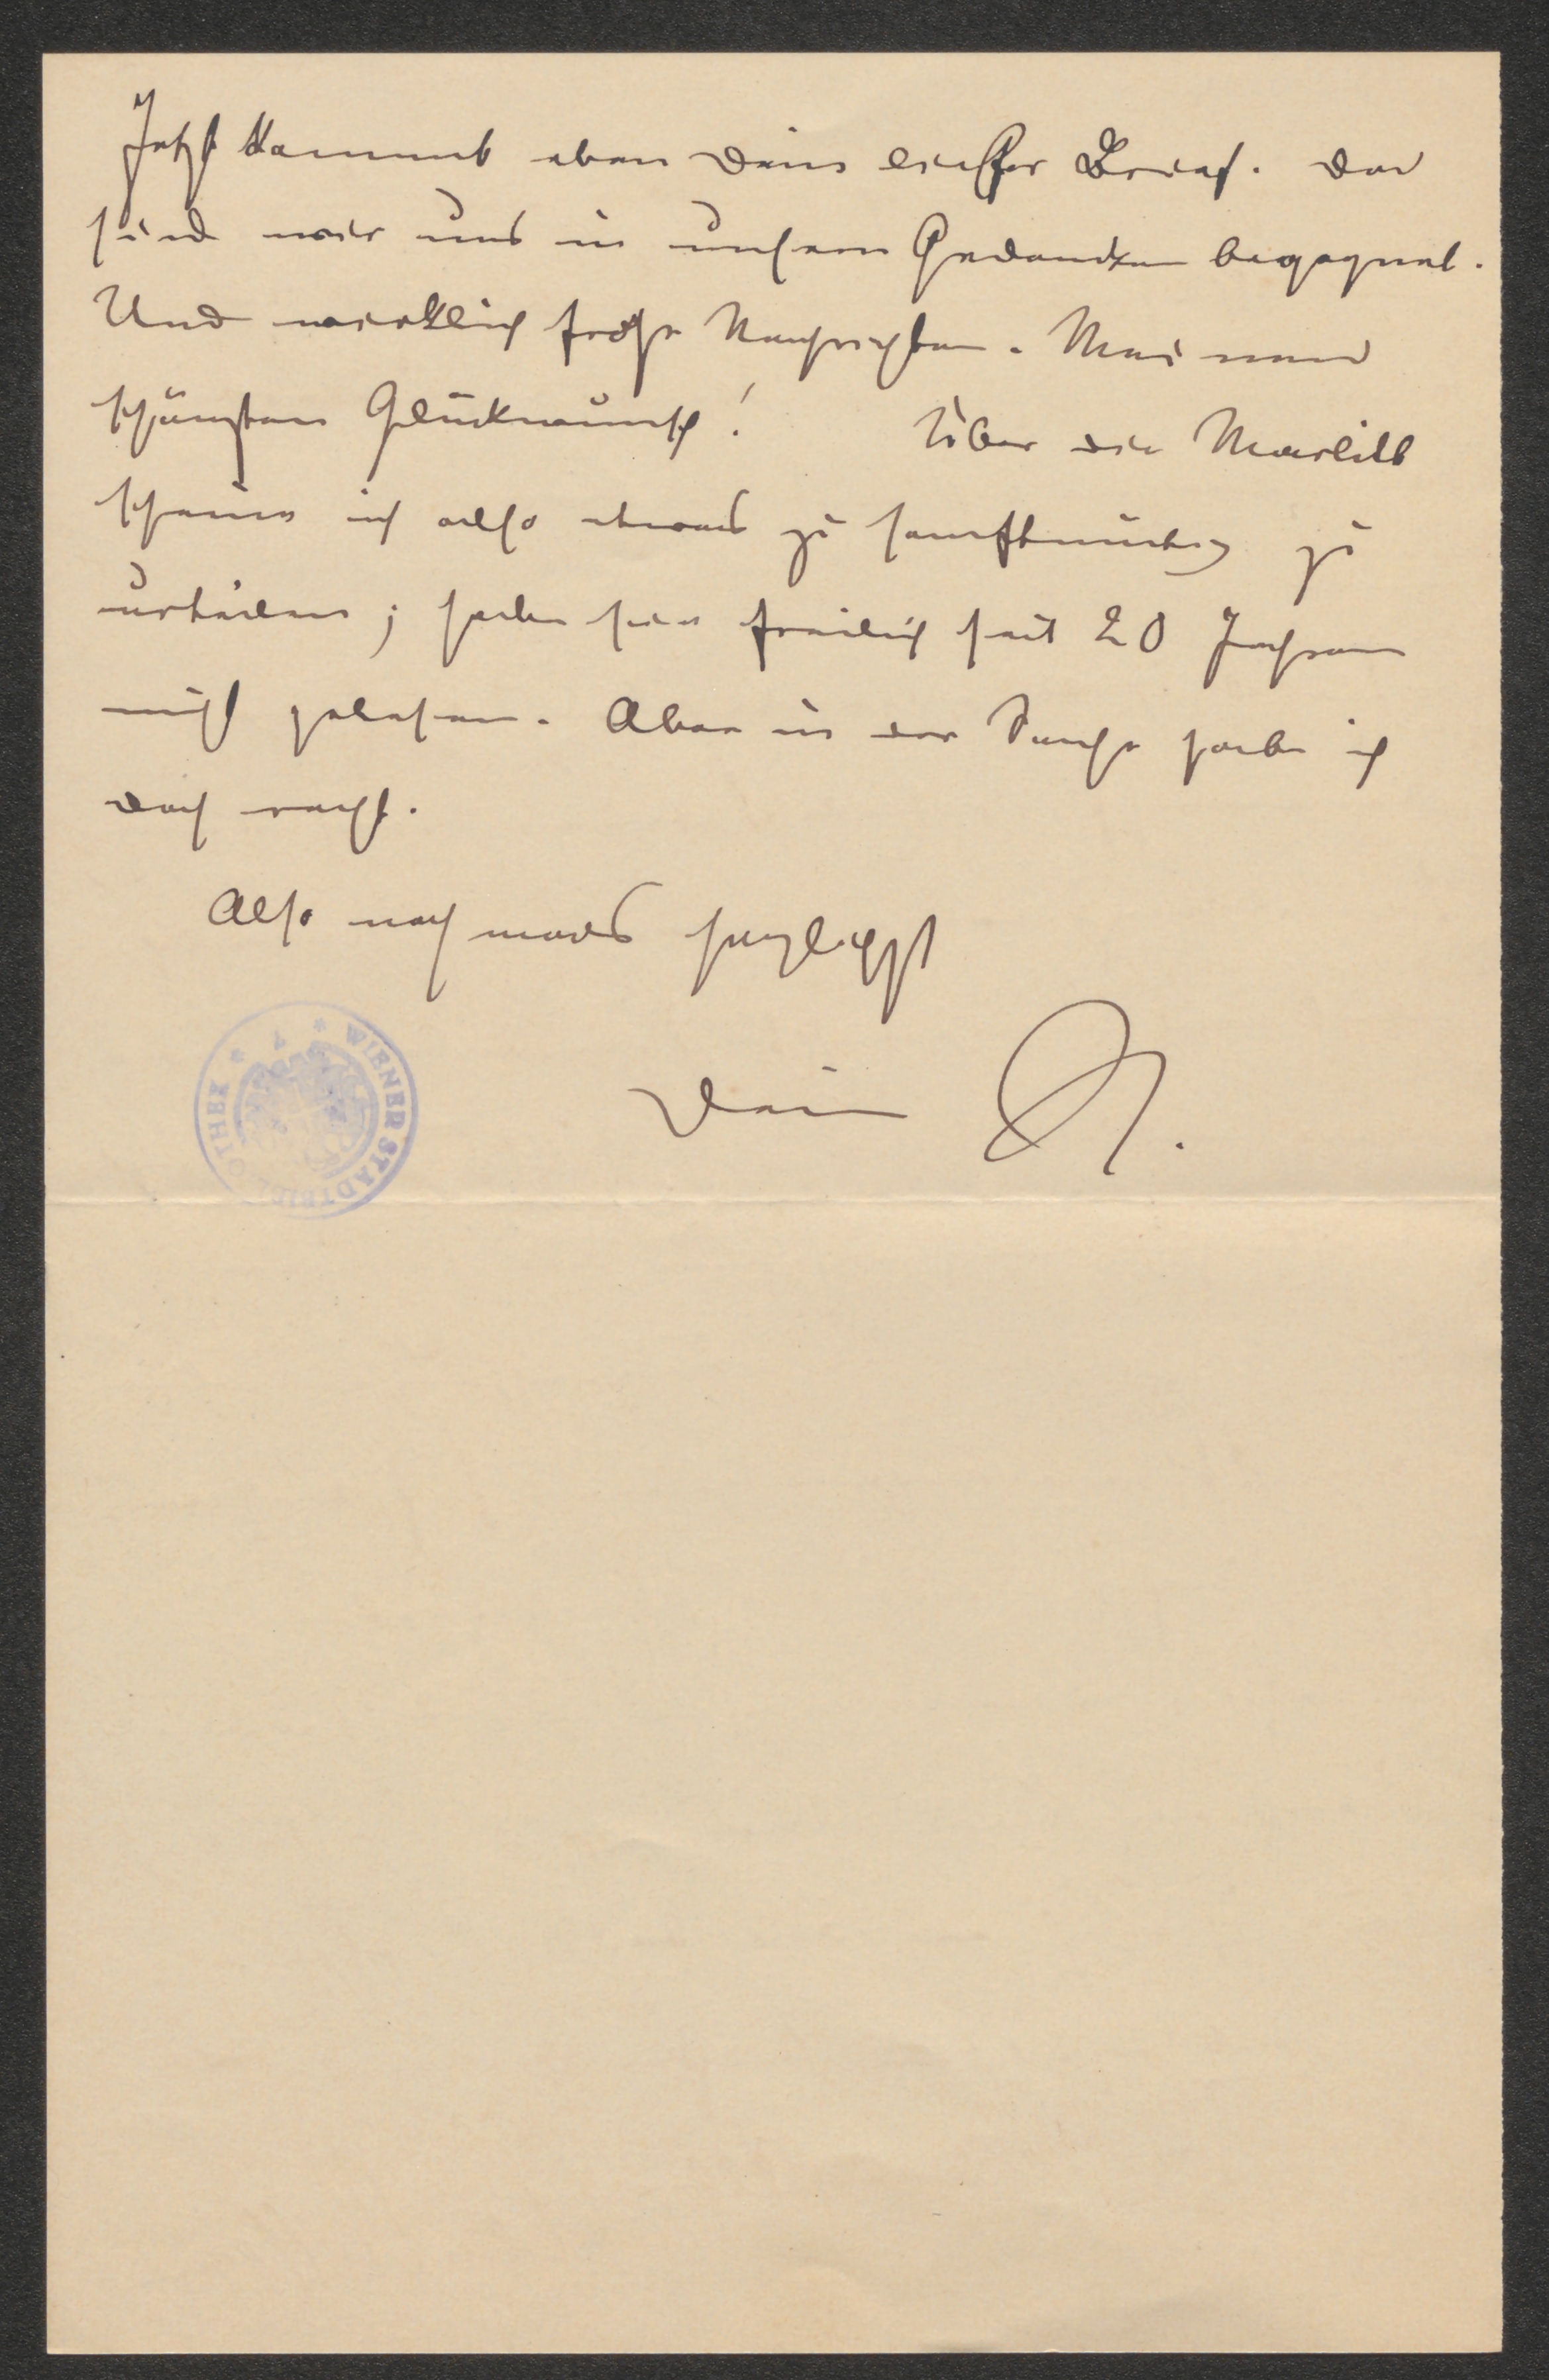 Jetzt kommt eben Dein lieber Brief. Da
sind wir uns in unsern Gedanken begegnet.
Und wirklich frohe Nachrichten. Meinen
schönsten Glückwunsch! Über die Marlitt
scheine ich also etwas zu sanftmütig zu
urteilen; habe sie freilich seit 20 Jahren
nicht gelesen. Aber in der Sache habe ich
doch recht.
Also nochmals herzlichst
Dein
WIENER STADTBIBLIOTHEK